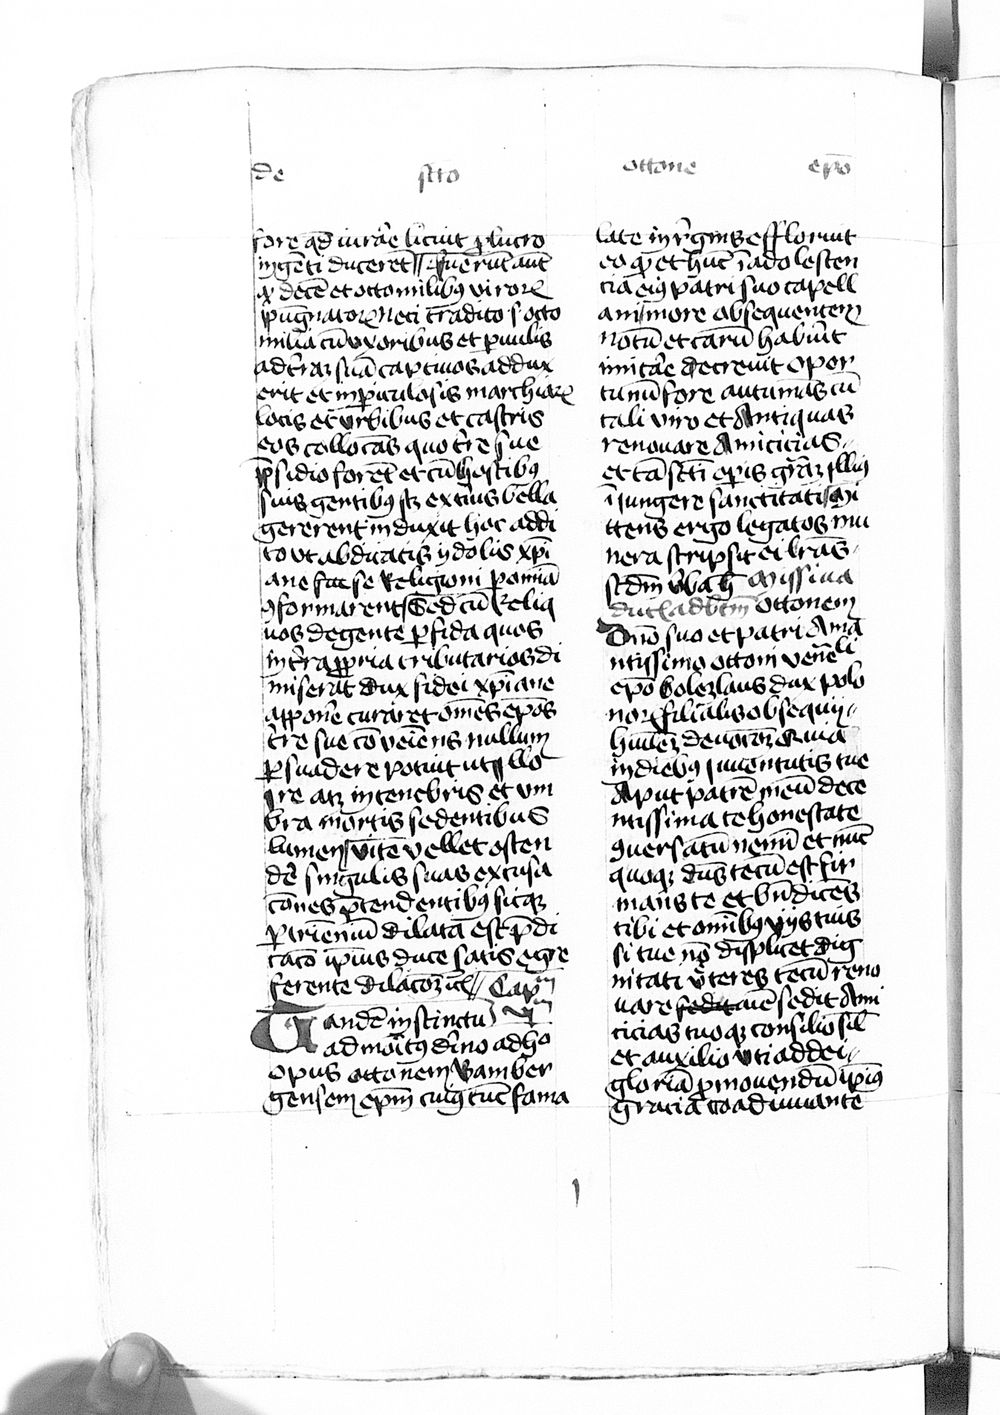 de scto ottone epo
fore qd iurare licuit p lucro
ingenti duceret fuerut aut
et octo milibus viroru
pugnatoru neci tradito s octo
milia cu uxoribus et puulis
ad suam captivos addux
erit et in piculosis marchiaru
locis et urbibus et castris
eos collocas quo tre sue
psidio foret et cu hostibus
suis gentibus exteris bella
gererent induxit hoc addi
to ut abdicatis ydolis xpi
ane fidei se religioni pomia
9formarent Sed cu reliq
uos de gente pfida quos
intra ppria tributarios di
miserat dux fidei xpiane
appone curaret omes epos
tre sue co veiens nullum
psuadere potuit ut illo
in tenebris et um
bra mortis sedentibus
lumen vite vellet osten
de singulis suas excusa
cones ptendentibus sicqz
p trienniu dilata est pdi
cato ipius duce satis egre
ferente dilacoz Capm
Tande instinctu
admoitus dino ad ho
opus ottonem Bamber
gensem epm cuius tuc fama
late in rgnis effloruit
eo qd et huc i adolescen
cia eius patri suo capell
ani more obsequentem
notu et caru habuit
imitare decrevit opor
tunu fore autumas cu
tali viro et Antiquas
renovare Amicicias
et ta scti opis graz illius
iiungere sanctitati Mi
ttens ergo legatos mu
nera scripsit ei lras
Missiva
ducis ad btm Ottonem
Dno suo et patri Ama
ntissimo ottoni veneli
epo bolezlaus dux polo
noru filialis obsequii
humiez devocoz Quia
in diebus iuventutis tue
Aput patre meu dece
ntissima te honestate
9versatu memi et nuc
quoqz dus tecu est fir
mans te et bndices
tibi et omibus vijs tuis
si tue no displicet dig
nitati veteres tecu reno
vare sedit Ami
cicias tuoqz consilio sil
et auxilio uti ad dei
gloria pmovendu ipius
gracia coadiuvante